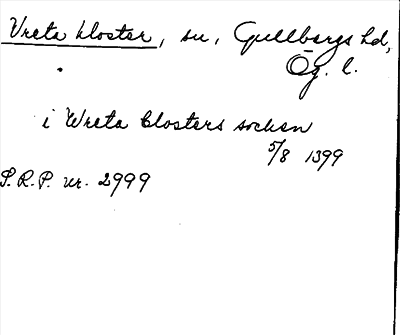 Vreta kloster, sn, Gullbergs hd,
Ög. l.
i Wreta Closters sochen
5/8 1399
S.R.P. nr. 2999